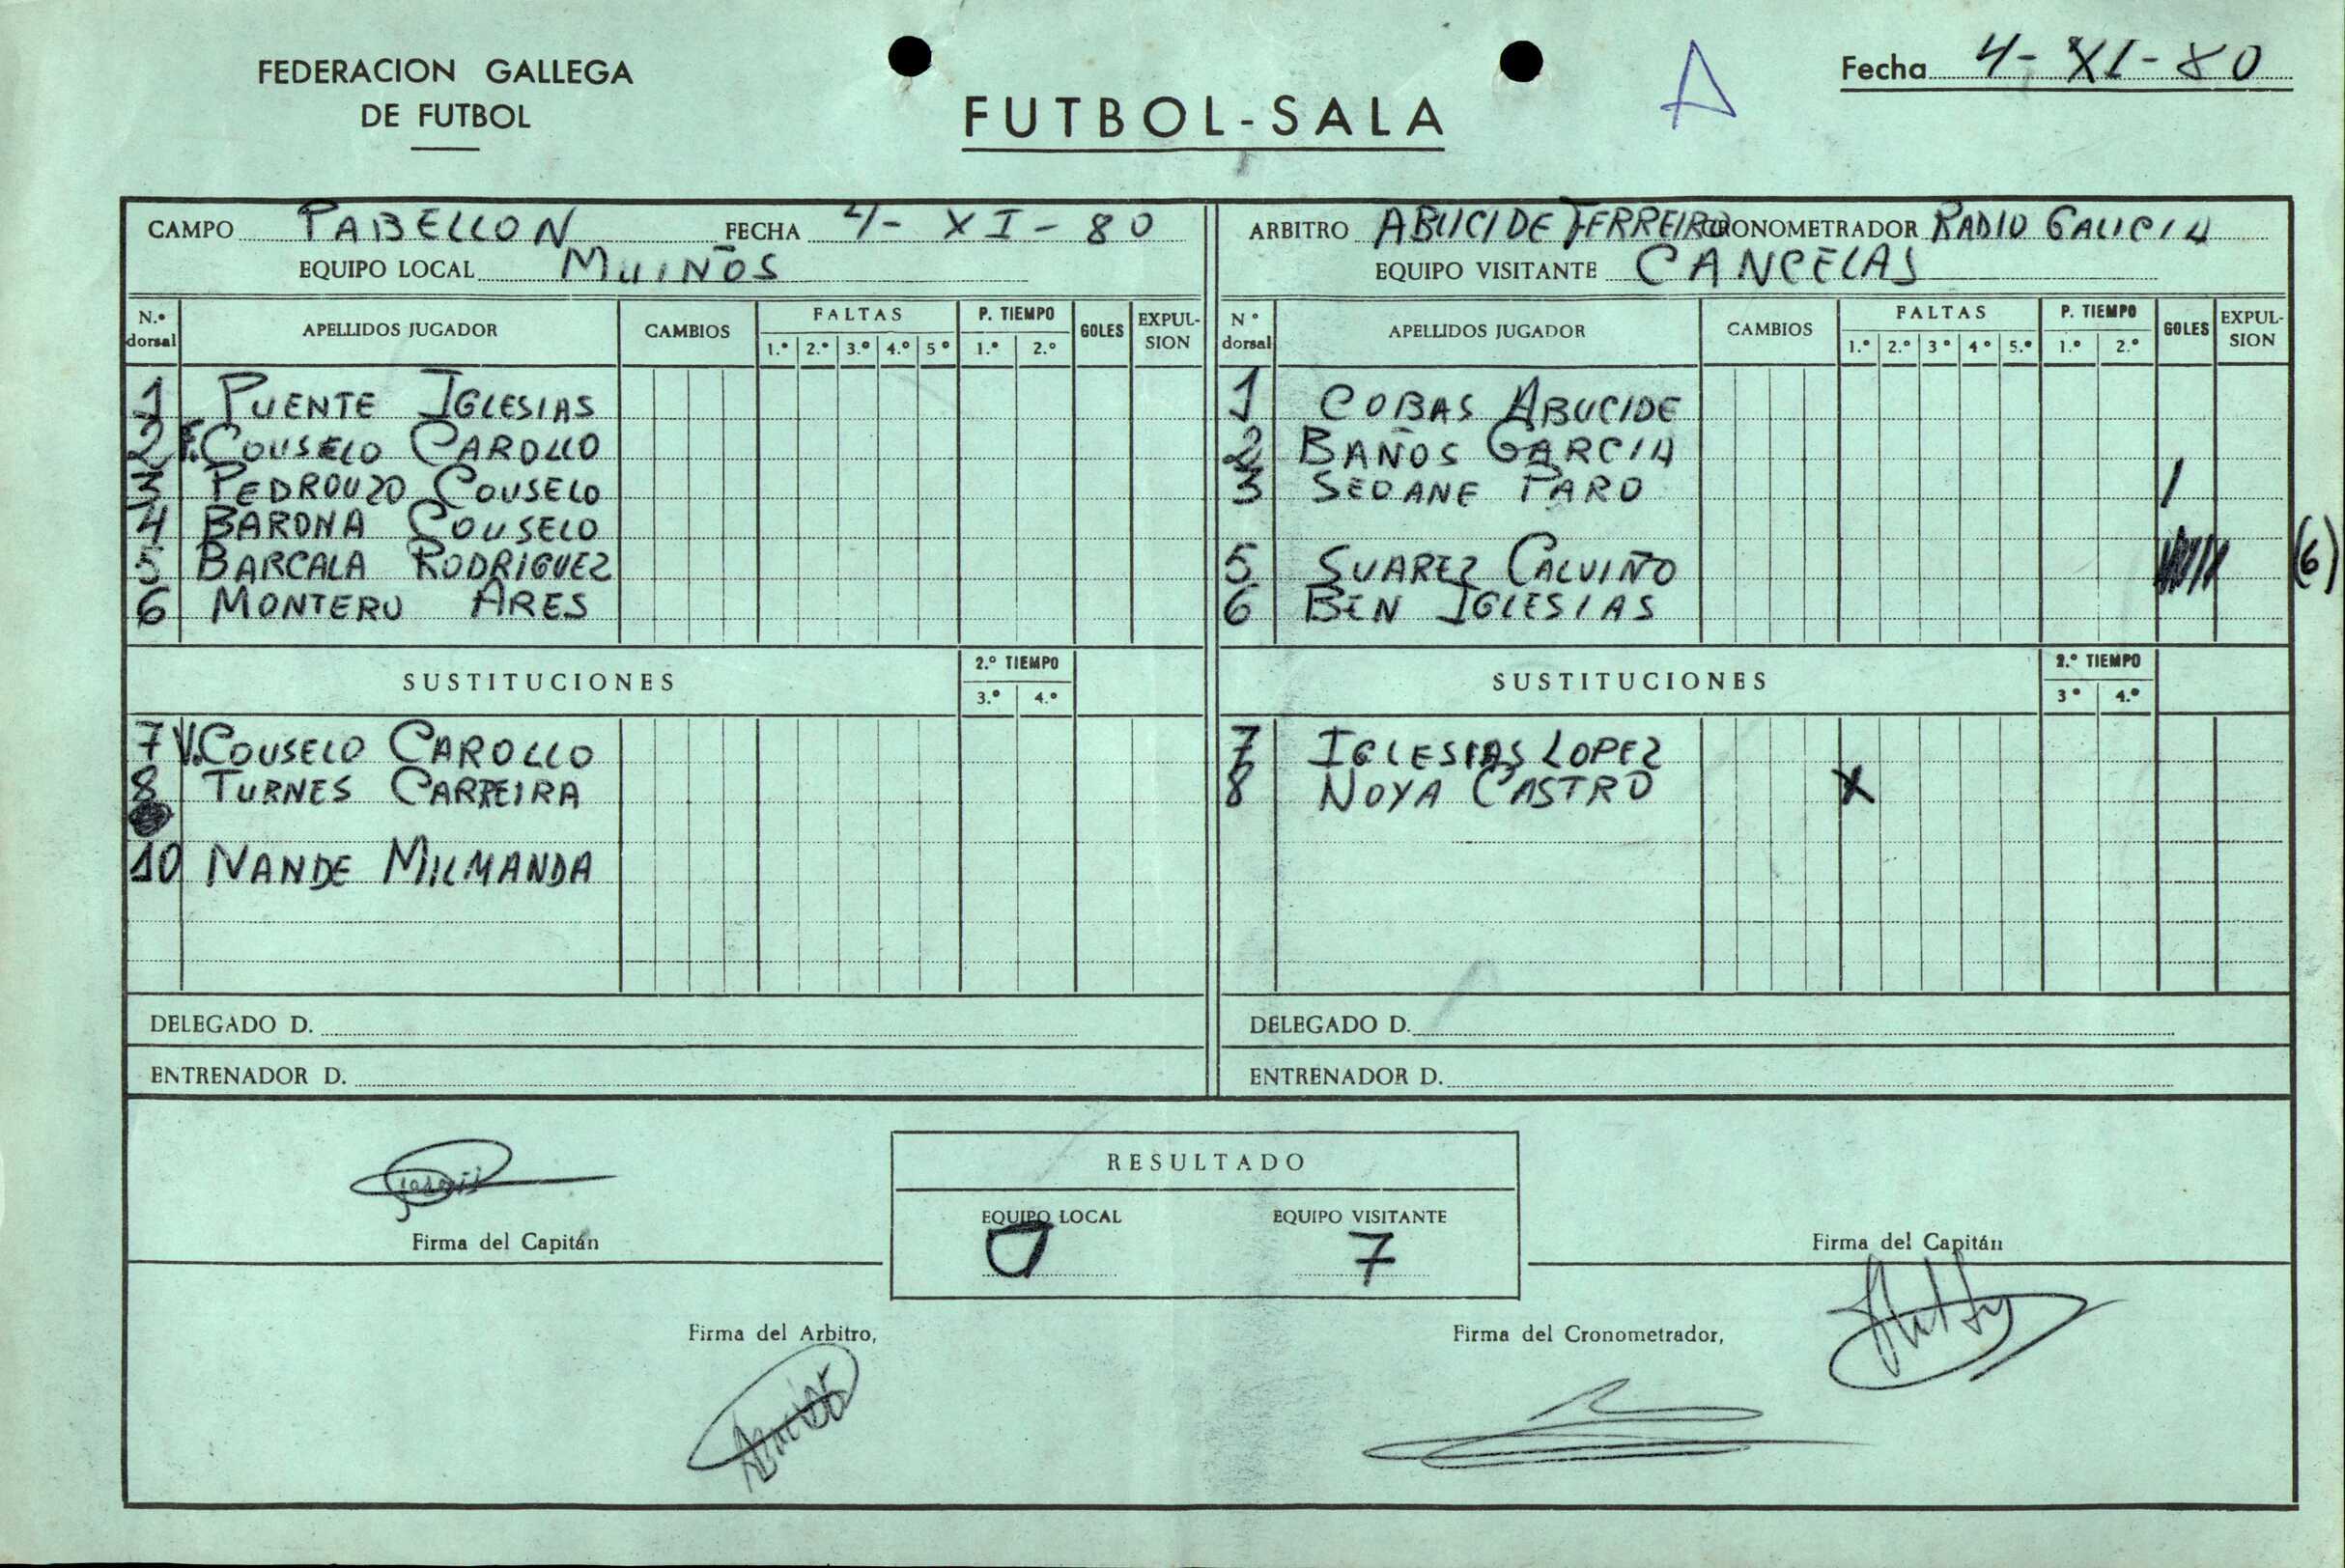 FEDERACION GALLEGA
DE FUTBOL
FUTBOL-SALA
A
Fecha 4-XI-80
CAMPO PABELLON FECHA 4-XI-80
EQUIPO LOCAL MUIÑOS
ARBITRO ABUCIDE FERREIRO CRONOMETRADOR RADIO GALICIA
EQUIPO VISITANTE CANCELAS
N.º dorsal APELLIDOS JUGADOR CAMBIOS FALTAS 1.º 2.º 3.º 4.º 5º P. TIEMPO 1.º 2.º GOLES EXPULSION
1 PUENTE IGLESIAS
2 F. COUSELO CAROLLO
3 PEDROUZO COUSELO
4 BARONA COUSELO
5 BARCALA RODRIGUEZ
6 MONTERO ARES
SUSTITUCIONES 2.º TIEMPO 3.º 4.º
7 V. COUSELO CAROLLO
8 TURNES CARREIRA
10 NANDE MILMANDA
DELEGADO D.
ENTRENADOR D.
Nº dorsal APELLIDOS JUGADOR CAMBIOS FALTAS 1.º 2.º 3º 4º 5.º P. TIEMPO 1.º 2.º GOLES EXPULSION
1 COBAS ABUCIDE
2 BAÑOS GARCIA
3 SEOANE PARO /
5 SUAREZ CALVIÑO ////// (6)
6 BEN IGLESIAS
SUSTITUCIONES 2.º TIEMPO 3º 4.º
7 IGLESIAS LOPEZ
8 NOYA CASTRO X
DELEGADO D.
ENTRENADOR D.
RESULTADO
EQUIPO LOCAL EQUIPO VISITANTE
0 7
Firma del Capitán
Firma del Capitán
Firma del Arbitro,
Firma del Cronometrador,